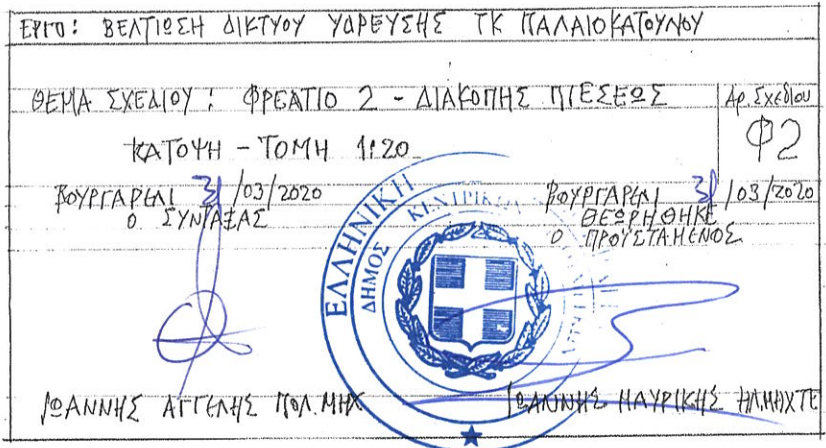 ΕΡΓΟ: ΒΕΛΤΙΩΣΗ ΔΙΚΤΥΟΥ ΥΔΡΕΥΣΗΣ ΤΚ ΠΑΛΑΙΟΚΑΤΟΥΝΟΥ
ΘΕΜΑ ΣΧΕΔΙΟΥ: ΦΡΕΑΤΙΟ 2 - ΔΙΑΚΟΠΗΣ ΠΙΕΣΕΩΣ
Αρ. Σχεδίου
Φ2
ΚΑΤΟΨΗ - ΤΟΜΗ 1:20
ΒΟΥΡΓΑΡΕΛΙ 31/03/2020
Ο ΣΥΝΤΑΞΑΣ
ΒΟΥΡΓΑΡΕΛΙ 31/03/2020
ΘΕΩΡΗΘΗΚΕ
Ο ΠΡΟΥΣΤΑΜΕΝΟΣ
ΕΛΛΗΝΙΚΗ
ΔΗΜΟΣ ΚΕΝΤΡΙΚΩΝ
ΙΩΑΝΝΗΣ ΑΓΓΕΛΗΣ ΠΟΛ. ΜΗΧ
ΙΩΑΝΝΗΣ ΜΑΥΡΙΚΗΣ ΗΛ.ΜΗΧ ΤΕ